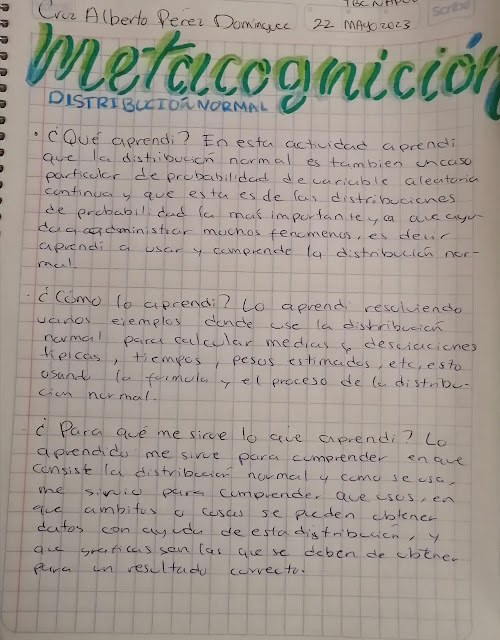 Cruz Alberto Pérez Domínguez
22 MAYO 2023
Scribe
metacognición
DISTRIBUCIÓN NORMAL
• ¿Qué aprendi? En esta actividad aprendi
que la distribución normal es tambien un caso
particular de probabilidad de variable aleatoria
continua y que esta es de las distribuciones
de probabilidad la mas importante ya que ayu-
da a administrar muchos fenomenos, es decir
aprendi a usar y comprende la distribución nor-
mal.
• ¿Cómo lo aprendi? Lo aprendi resolviendo
varios ejemplos donde use la distribución
normal para calcular medias y desviaciones
tipicas, tiempos, pesos estimados, etc, esto
usando la formula y el proceso de la distribu-
cion normal.
• ¿Para qué me sirve lo que aprendi? Lo
aprendido me sirve para comprender en que
consiste la distribución normal y como se usa,
me sirvio para comprender que usos, en
que ambitos o cosas se pueden obtener
datos con ayuda de esta distribución, y
que graficas son las que se deben de obtener
para un resultado correcto.